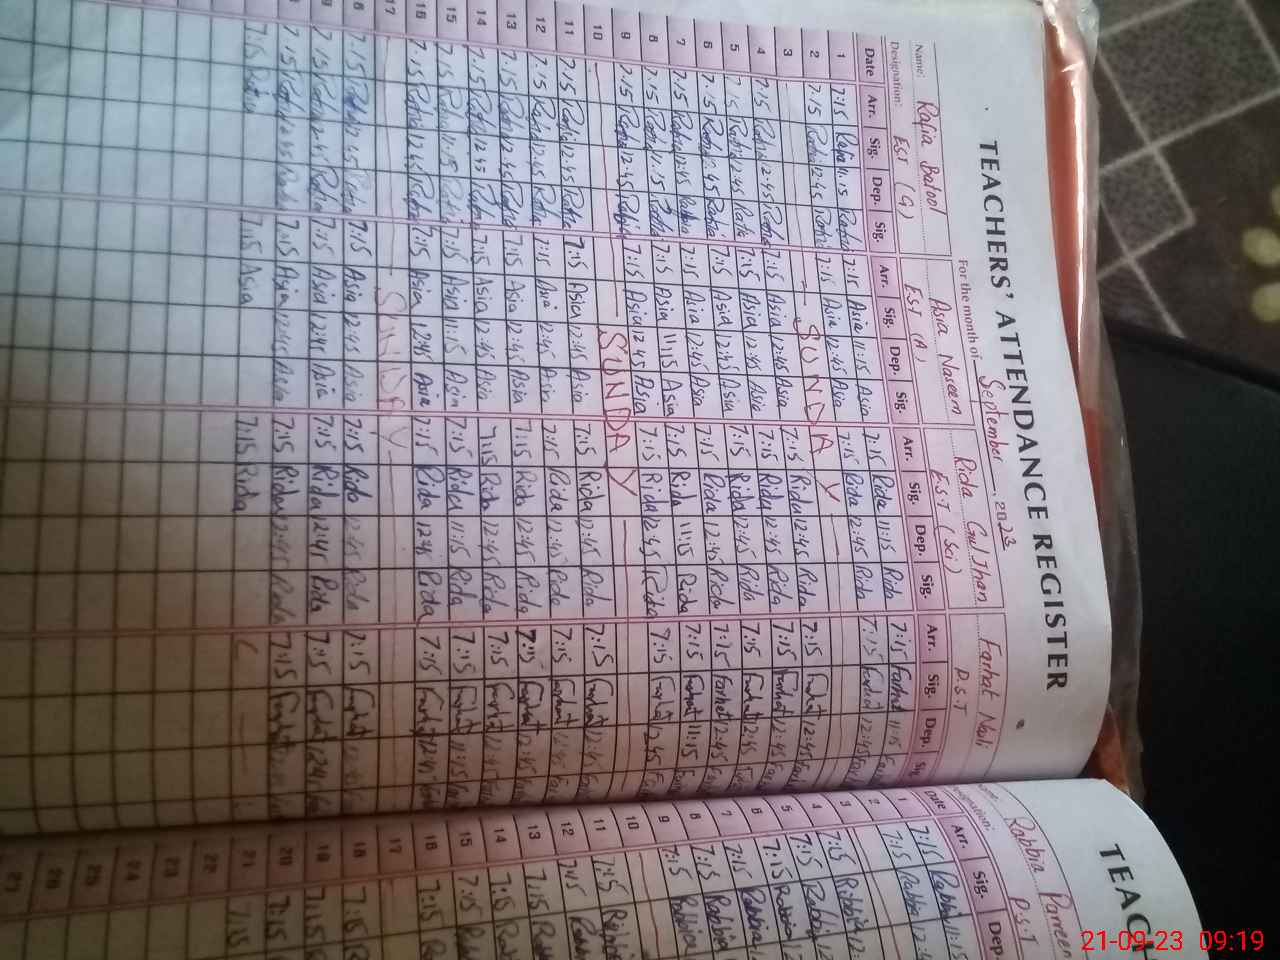 TEACHERS' ATTENDANCE REGISTER
For the month of September. 2023
Name: Rafia Batool Asia Naseem Rida Gul Jhan Farhat Naili
Designation: EST (G) EST (A) E.S.T (Sci) P.S.T
Date Arr. Sig. Dep. Sig. Arr. Sig. Dep. Sig. Arr. Sig. Dep. Sig. Arr. Sig. Dep. Sig
1 7:15 Rafia 11:15 Rafia 7:15 Asia 11:15 Asia 7:15 Rida 11:15 Rida 7:15 Farhat 11:15
2 7:15 Rafia 12:45 Rafia 7:15 Asia 12:45 Asia 7:15 Rida 12:45 Rida 7:15 Farhat 12:45
3 SUNDAY
4 7:15 Rafia 12:45 Rafia 7:15 Asia 12:45 Asia 7:15 Rida 12:45 Rida 7:15 Farhat 12:45
5 7:15 Rafia 12:45 Rafia 7:15 Asia 12:45 Asia 7:15 Rida 12:45 Rida 7:15 Farhat 12:45
6 7:15 Rafia 12:45 Rafia 7:15 Asia 12:45 Asia 7:15 Rida 12:45 Rida 7:15 Farhat 12:45
7 7:15 Rafia 12:45 Rafia 7:15 Asia 12:45 Asia 7:15 Rida 12:45 Rida 7:15 Farhat 12:45
8 7:15 Rafia 11:15 Rafia 7:15 Asia 11:15 Asia 7:15 Rida 11:15 Rida 7:15 Farhat 11:15
9 7:15 Rafia 12:45 Rafia 7:15 Asia 12:45 Asia 7:15 Rida 12:45 Rida 7:15 Farhat 12:45
10 SUNDAY
11 7:15 Rafia 12:45 Rafia 7:15 Asia 12:45 Asia 7:15 Rida 12:45 Rida 7:15 Farhat 12:45
12 7:15 Rafia 12:45 Rafia 7:15 Asia 12:45 Asia 7:15 Rida 12:45 Rida 7:15 Farhat 12:45
13 7:15 Rafia 12:45 Rafia 7:15 Asia 12:45 Asia 7:15 Rida 12:45 Rida 7:15 Farhat 12:45
14 7:15 Rafia 12:45 Rafia 7:15 Asia 12:45 Asia 7:15 Rida 12:45 Rida 7:15 Farhat 12:45
15 7:15 Rafia 11:15 Rafia 7:15 Asia 11:15 Asia 7:15 Rida 11:15 Rida 7:15 Farhat 11:15
16 7:15 Rafia 12:45 Rafia 7:15 Asia 12:45 Asia 7:15 Rida 12:45 Rida 7:15 Farhat 12:45
17 SUNDAY
18 7:15 Rafia 12:45 Rafia 7:15 Asia 12:45 Asia 7:15 Rida 12:45 Rida 7:15 Farhat
7:15 Rafia 12:45 Rafia 7:15 Asia 12:45 Asia 7:15 Rida 12:45 Rida 7:15 Farhat 12:45
7:15 Rafia 12:45 Rafia 7:15 Asia 12:45 Asia 7:15 Rida 12:45 Rida 7:15 Farhat
7:15 Rafia 7:15 Asia 7:15 Rida
TEAC
Name: Rabbia Parveen
Designation: P.S.T
Date Arr. Sig. Dep.
1 7:15 Rabbia 11:15
2 7:15 Rabbia
3
4 7:15 Rabbia
5 7:15 Rabbia
6 7:15 Rabbia
7 7:15 Rabbia
8 7:15 Rabbia
9 7:15 Rabbia
10
11 7:15 Rabbia
12 7:15 Rabbia
13 7:15
14 7:15
15 7:15
16 7:15
17
18 7:15
19 7:15
20 7:15
21 7:15
22
23
24
25
26
27
21-09-23 09:19